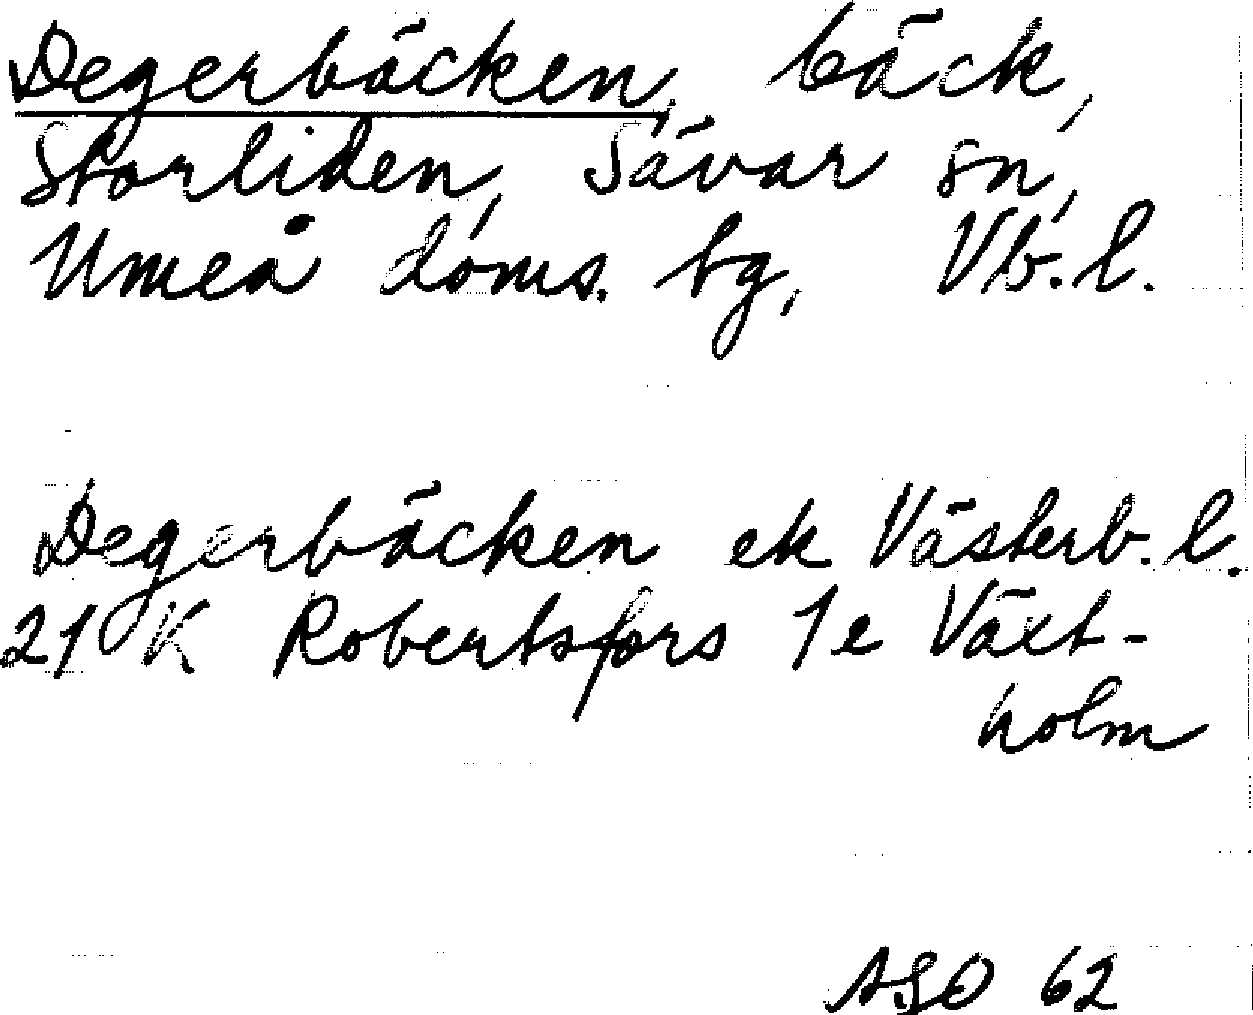 Degerbäcken, bäck,
Storliden, Sävar sn,
Umeå doms. tg, Vb. l.
Degerbäcken ek Västerb. l.
21 K Robertsfors 1e Växt-
holm
ASO 62